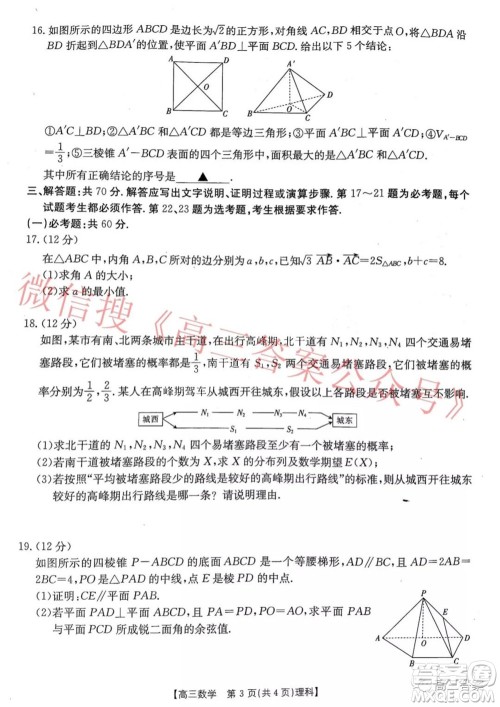 16. 如图所示的四边形ABCD是边长为√2的正方形，对角线AC，BD相交于点O，将△BDA沿
BD折起到△BDA′的位置，使平面A′BD⊥平面BCD. 给出以下5个结论：
A D O B C
A′ O D B C
①A′C⊥BD；②△A′BC和△A′DC都是等边三角形；③平面A′BC⊥平面A′DC；④V_{A′-BCD}
=1/3；⑤三棱锥A′-BCD表面的四个三角形中，面积最大的是△A′BD和△BCD.
其中所有正确结论的序号是 ▲ .
三、解答题：共70分. 解答应写出文字说明、证明过程或演算步骤. 第17～21题为必考题，每个
试题考生都必须作答. 第22、23题为选考题，考生根据要求作答.
(一)必考题：共60分.
17. (12分)
在△ABC中，内角A，B，C所对的边分别为a，b，c，已知√3 AB·AC=2S△ABC，b+c=8.
(1)求角A的大小；
(2)求a的最小值.
18. (12分)
如图，某市有南、北两条城市主干道，在出行高峰期，北干道有N₁，N₂，N₃，N₄四个交通易堵
塞路段，它们被堵塞的概率都是1/3，南干道有S₁，S₂两个交通易堵塞路段，它们被堵塞的概
率分别为1/2，2/3. 某人在高峰期驾车从城西开往城东，假设以上各路段是否被堵塞互不影响.
城西 N₁ N₂ N₃ N₄ 城东
S₁ S₂
(1)求北干道的N₁，N₂，N₃，N₄四个易堵塞路段至少有一个被堵塞的概率；
(2)若南干道被堵塞路段的个数为X，求X的分布列及数学期望E(X)；
(3)若按照“平均被堵塞路段少的路线是较好的高峰期出行路线”的标准，则从城西开往城东
较好的高峰期出行路线是哪一条？请说明理由.
19. (12分)
如图所示的四棱锥P－ABCD的底面ABCD是一个等腰梯形，AD∥BC，且AD=2AB=
2BC=4，PO是△PAD的中线，点E是棱PD的中点.
(1)证明：CE∥平面PAB.
(2)若平面PAD⊥平面ABCD，且PA=PD=4，求平面PAB
与平面PCD所成锐二面角的余弦值.
P E A O D B C
【高三数学 第3页(共4页)理科】
微信搜《高三答案公众号》